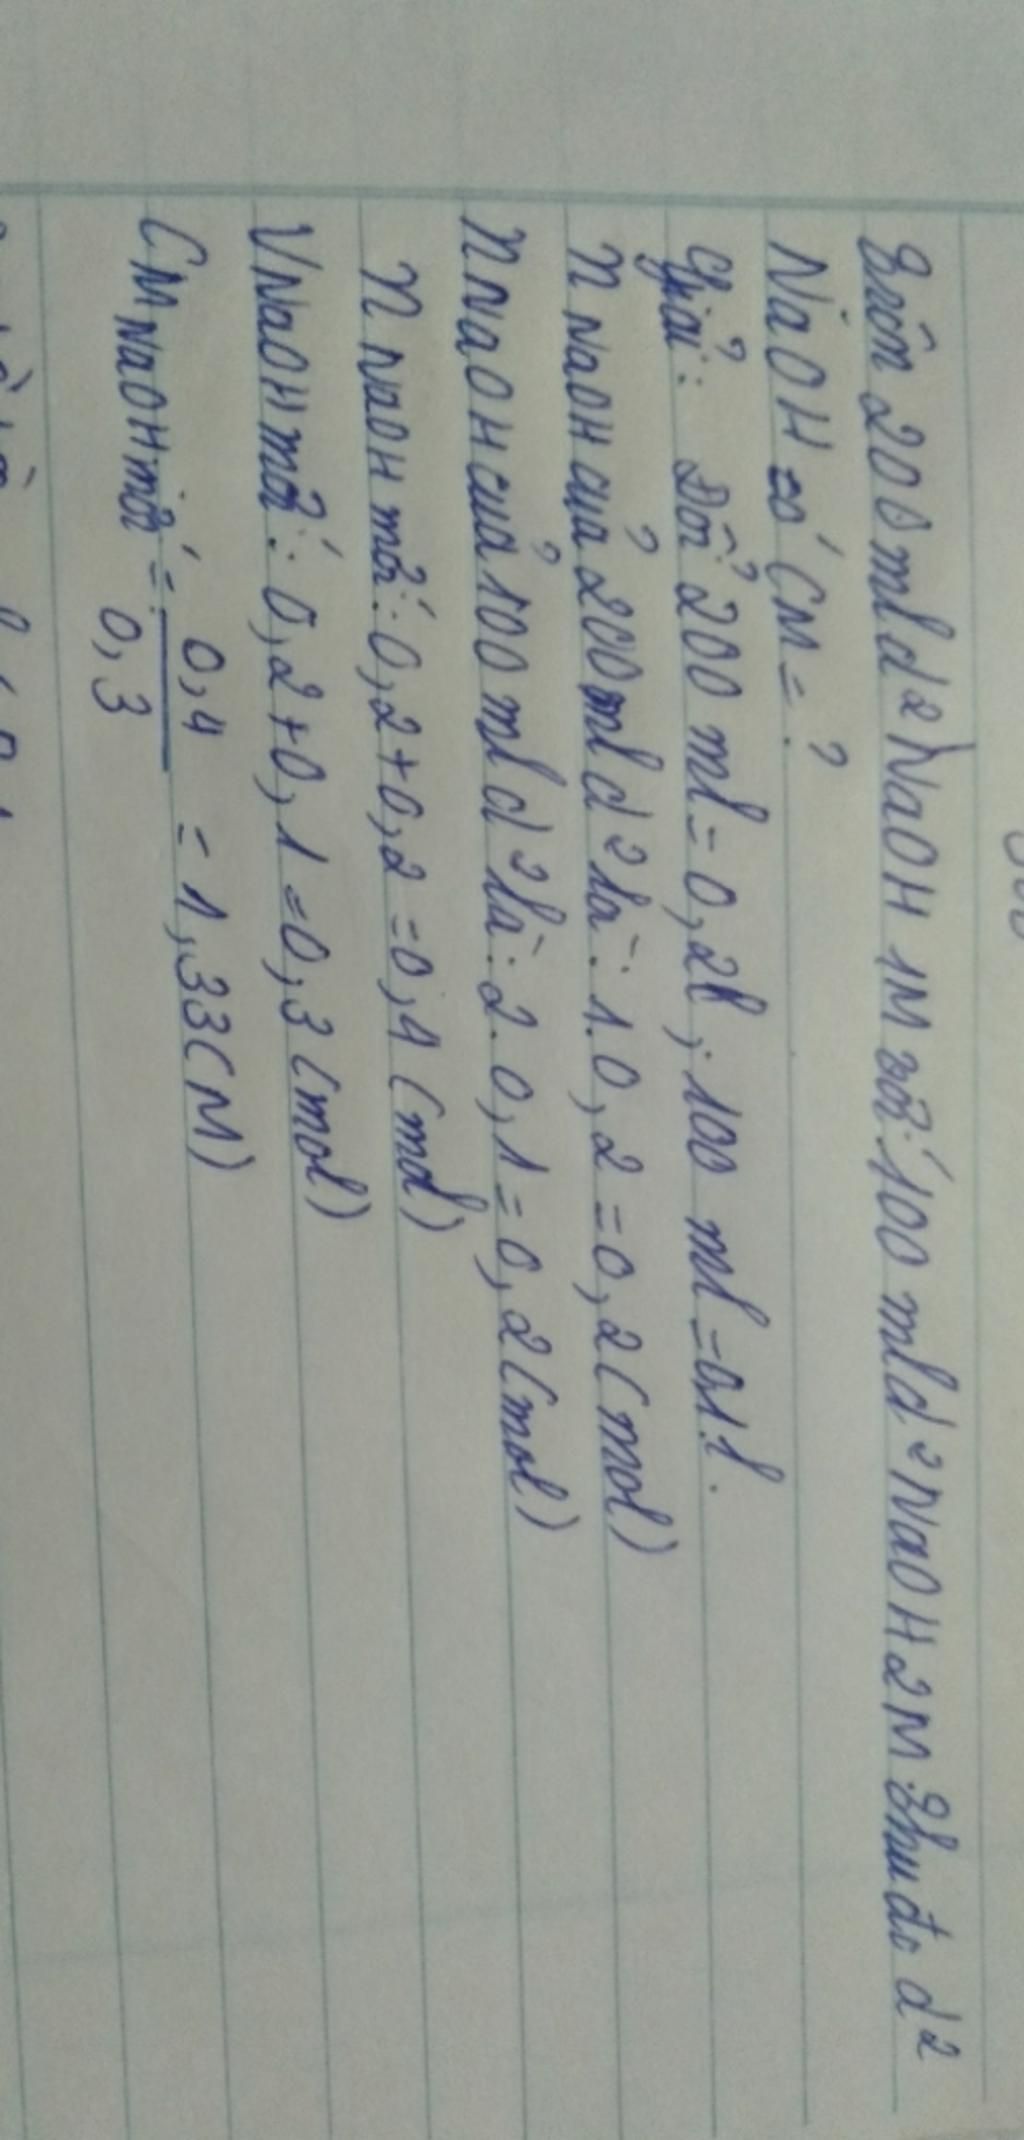 Trộn 200 ml d² NaOH 1M với 100 ml d² NaOH 2M Thu đc d²
NaOH có CM = ?
Giải: Đổi 200 ml = 0,2l; 100 ml = 0,1l.
n NaOH của 200 ml d² là: 1.0,2 = 0,2 (mol)
n NaOH của 100 ml d² là: 2.0,1 = 0,2 (mol)
n NaOH mới: 0,2 + 0,2 = 0,4 (mol)
VNaOH mới: 0,2 + 0,1 = 0,3 (mol)
CM NaOH mới = 0,4 / 0,3 = 1,33 (M)